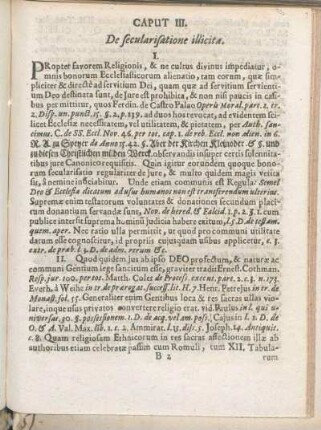 CAPUT III.
De secularisatione illicita.
I.
PRopter favorem Religionis, & ne cultus divinus impediatur, o-
mnis bonorum Ecclesiasticorum alienatio, tam eorum, quæ sim-
pliciter & directè ad servitium Dei, quam quæ ad servitium servienti-
um Deo destinata sunt, de Jure est prohibita, & non nisi paucis in casi-
bus permittitur, quos Ferdin. de Castro Palao Operis Moral. part. 2. tr.
2. Disp. un. punct. 15. §. 2. p. 339. ad duos hos revocat, ad evidentem sci-
licet Ecclesiæ necessitatem, vel utilitatem, & pietatem, per Auth. san-
cimus. C. de SS. Eccl. Nov. 46. per tot. cap. 1. de reb. Eccl. non alien. in 6.
R. A. zu Speyer de Anno 1542. §. Aber der Kirchen Kleinoder &. §. und
zu diesen Christlichen milden Werck. observandis insuper certis solennita-
tibus jure Canonico requisitis. Quin igitur eorundem quoque bono-
rum secularisatio regulariter sit inhibita, ac multo quidem magis vetita
sit, à nemine inficiabitur. Unde etiam communis est Regula: Semel
Deo & Ecclesiæ dicatum ad usus humanos non est transferendum ulterius.
Supremæ enim testatorum voluntates & donationes secundum placi-
rum donantium servandæ sunt, Nov. de hered. & Falcid. 1. p. 2. §. 1. cum
publicè intersit suprema hominũ judicia habere exitum, l. 5. D. de testam.
quem. aper. Nec ratio ulla permittit, ut quod pro communi utilitate
datum esse cognoscitur, id propriis cujusquam usibus applicetur, c. 3.
extr. de prob. l. 1. D. de adm. rerum &c.
II. Quod quidem jus ab ipso DEO profectum, & naturæ ac
communi Gentium lege sanctitum esse, graviter tradit Ernest. Cothman.
Resp. jur. 100. per tot. Matth. Coler de Process. execut. part. 2. c. 3. n. 175.
Everh. à Weihe in tr. de prærogat. success. lit. H. 7. Henr. Petrejus in tr. de
Monast. fol. 15. Generaliter enim Gentibus loca & res sacras ullas vio-
lare, inque usus privatos convertere religio erat. vid. Paulus in l. qui u-
niversas. 30. §. possessionem. 1. D. de acq. vel am. poss. Cajus in l. 1. D. de
O. & A. Val. Max. lib. 1. c. 2. Ammirat. l. 15. disc. 5. Joseph. 14. Antiquit.
c. 8. Quam religiosam Ethnicorum in res sacras affectionem illæ ab
authoribus etiam celebratæ passim cum Romuli, tum XII. Tabula-
B 2 rum